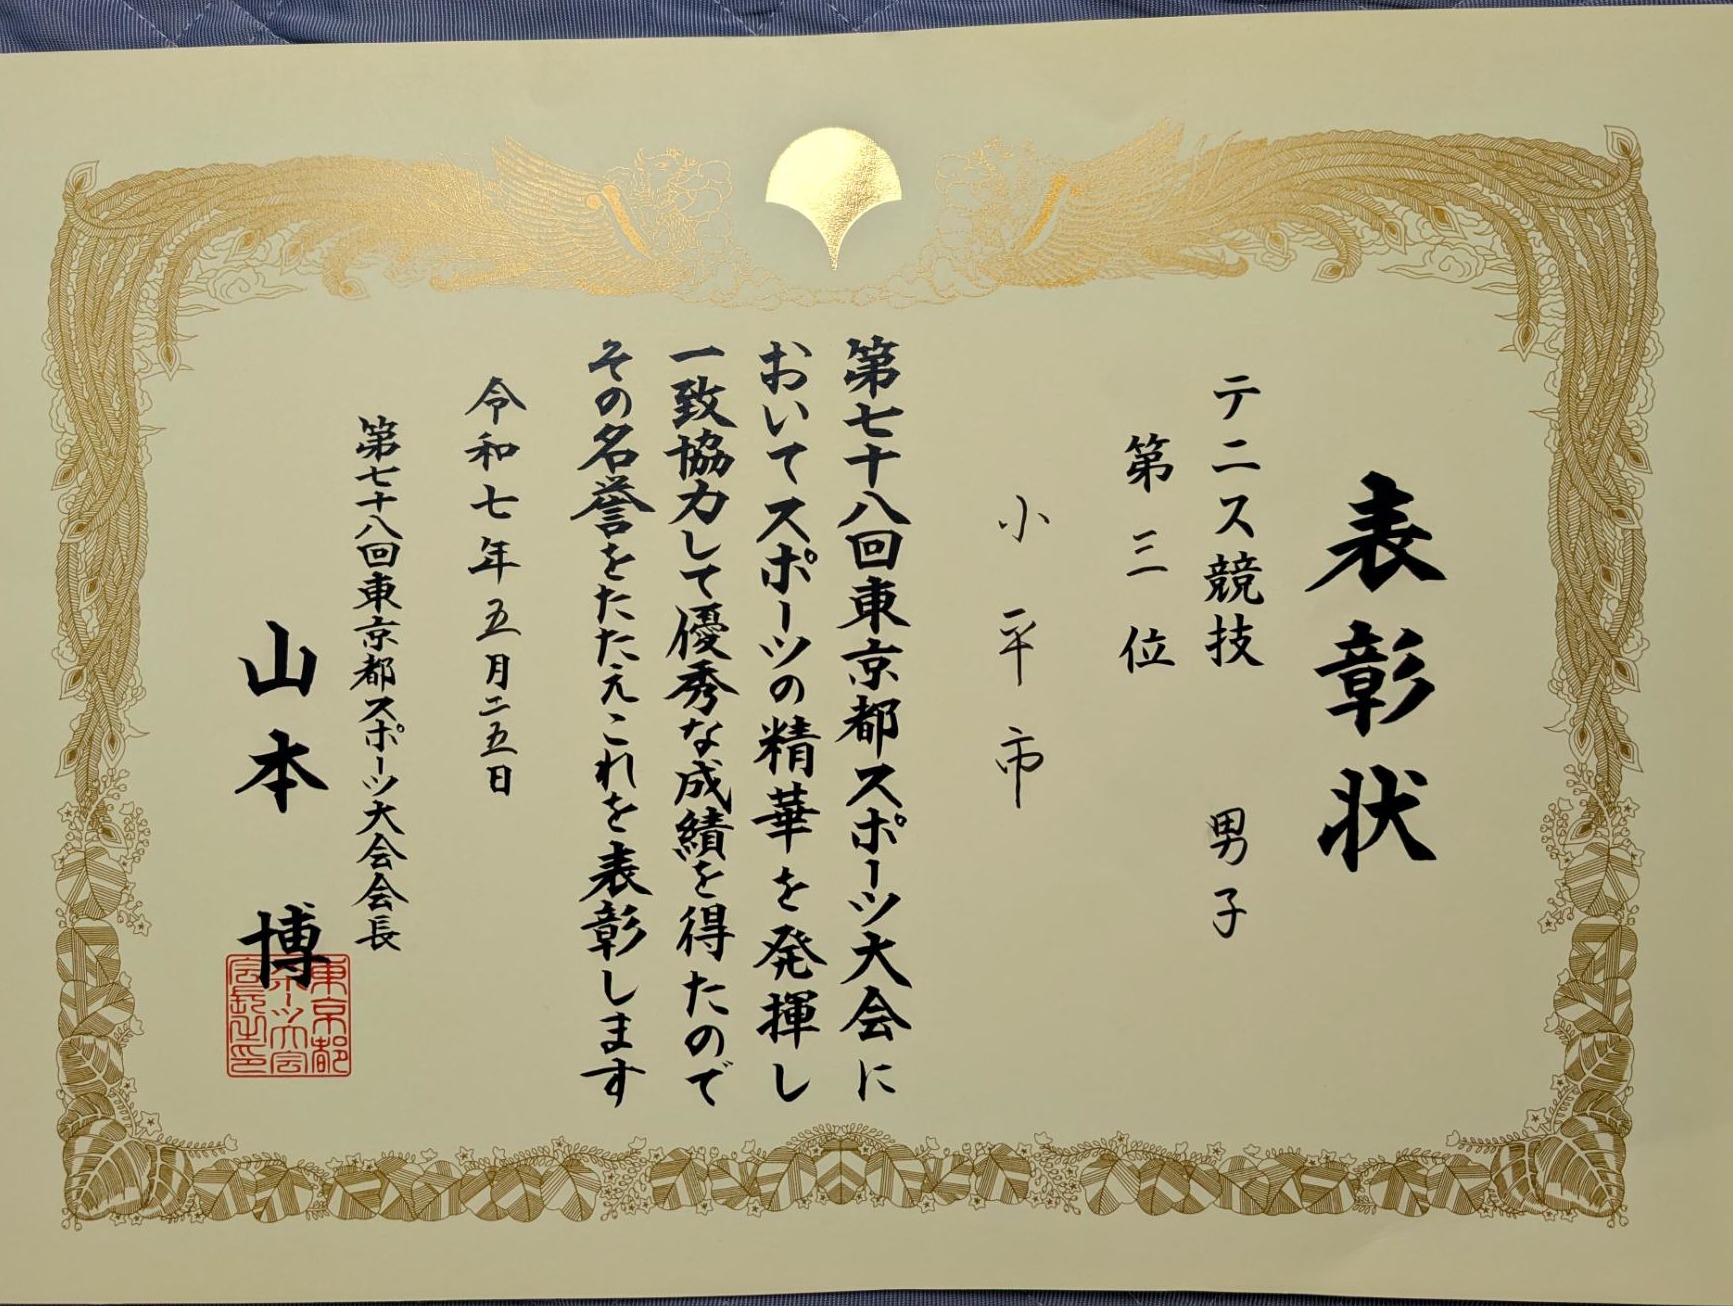 表彰状
テニス競技 男子
第三位
小平市
第七十八回東京都スポーツ大会に
おいてスポーツの精華を発揮し
一致協力して優秀な成績を得たので
その名誉をたたえこれを表彰します
令和七年五月二五日
第七十八回東京都スポーツ大会会長
山本 博
東京都
スポーツ大会
会長之印